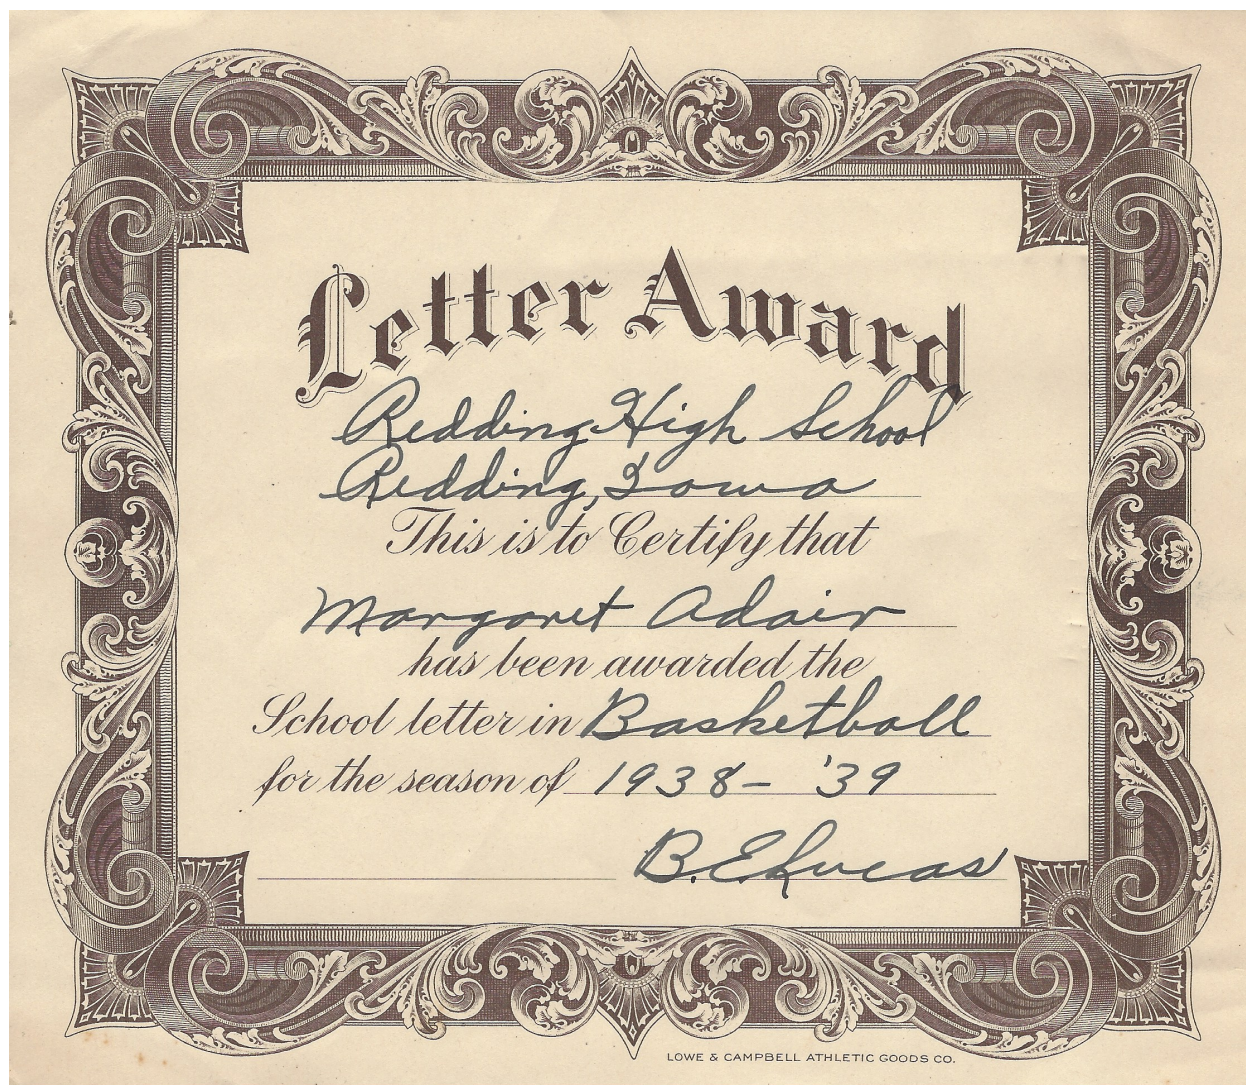 Letter Award
Redding High School
Redding, Iowa
This is to Certify that
Margaret Adair
has been awarded the
School letter in Basketball
for the season of 1938 - '39
B. E. Lucas
LOWE & CAMPBELL ATHLETIC GOODS CO.